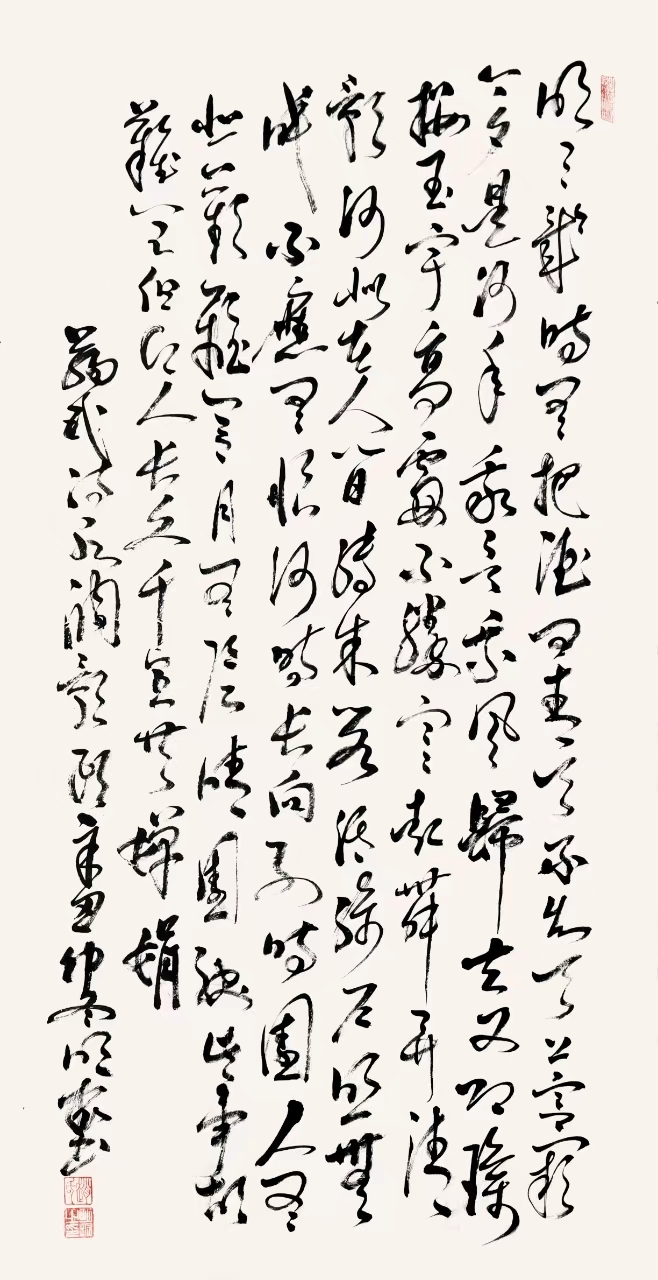 明月幾時有把酒問青天不知天上宮闕
今夕是何年我欲乘風歸去又恐瓊
樓玉宇高處不勝寒起舞弄清
影何似在人間轉朱閣低綺戶照無
眠不應有恨何時長向別時圓人有
悲歡離合月有陰晴圓缺此事古
難全但願人長久千里共嬋娟
蘇軾詞水調歌頭辛丑仲冬明